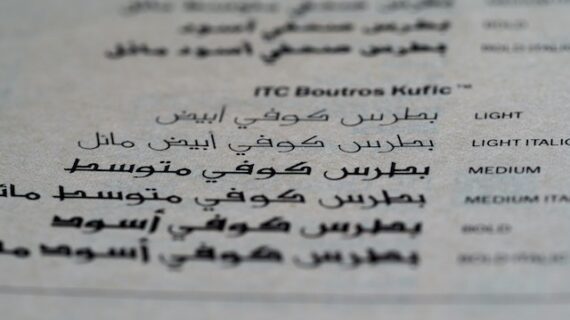 بطرس صحفي أسود
BOLD
بطرس صحفي أسود مائل
BOLD ITALIC
ITC Boutros Kufic™
بطرس كوفي أبيض
LIGHT
بطرس كوفي أبيض مائل
LIGHT ITALIC
بطرس كوفي متوسط
MEDIUM
بطرس كوفي متوسط مائل
MEDIUM ITA
بطرس كوفي أسود
BOLD
بطرس كوفي أسود ما
BOLD ITALIC